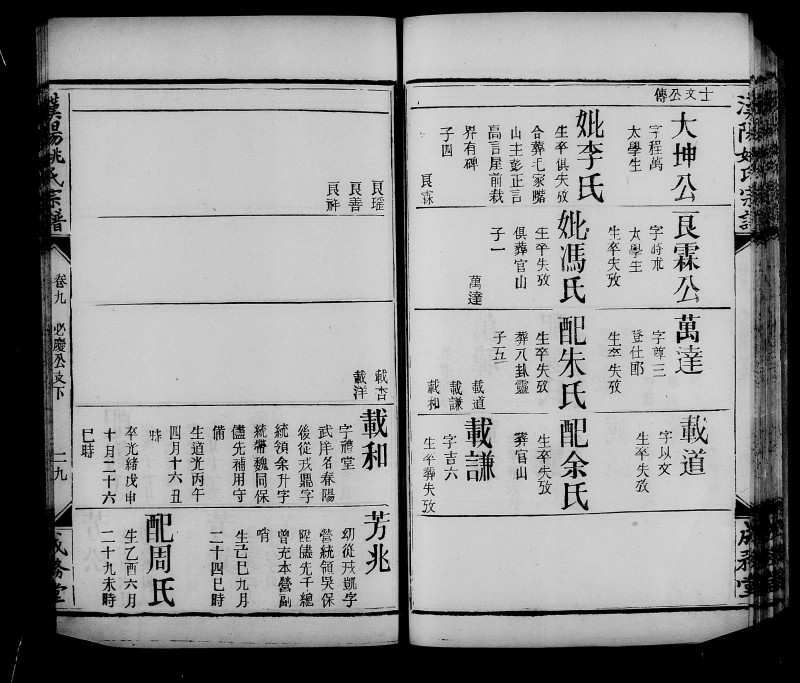 漢陽姚氏宗譜
士文公傳
大坤公
字程萬
太學生
妣李氏
生卒俱失攷
合葬毛家嘴
山主彭正言
高言屋前栽
界有碑
子四
良霖
良霖公
字時朮
太學生
生卒失攷
妣馮氏
生卒失攷
俱葬官山
子一
萬達
萬達
字尊三
登仕郎
生卒失攷
配朱氏
生卒失攷
葬八卦靈
子五
載道
載謙
載和
載道
字以文
生卒失攷
配余氏
生卒失攷
葬官山
載謙
字吉六
生卒葬失攷
成務堂
良瑤
良善
良祥
載杏
載洋
載和
字禮堂
武庠名春陽
後從戎鼎字
統領余升字
統帶魏同保
儘先補用守
備
生道光丙午
四月十六丑
時
卒光緒戊申
十月二十六
巳時
芳兆
幼從戎凱字
營統領吳保
陞儘先千總
曾充本營副
哨
生己巳九月
二十四巳時
配周氏
生乙酉六月
二十九未時
漢陽姚氏宗譜
卷九
必慶公支下
二九
成務堂